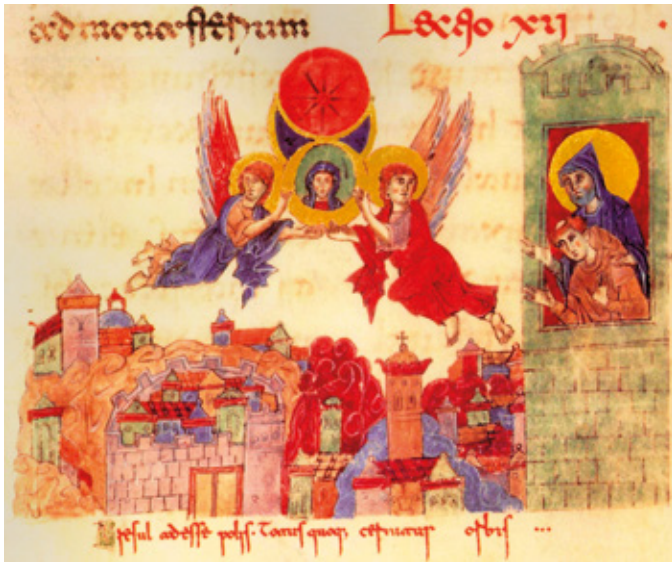 ad monasterium Lectio xii
Presul adesse polis. Totus quoq; cernitur orbis ...